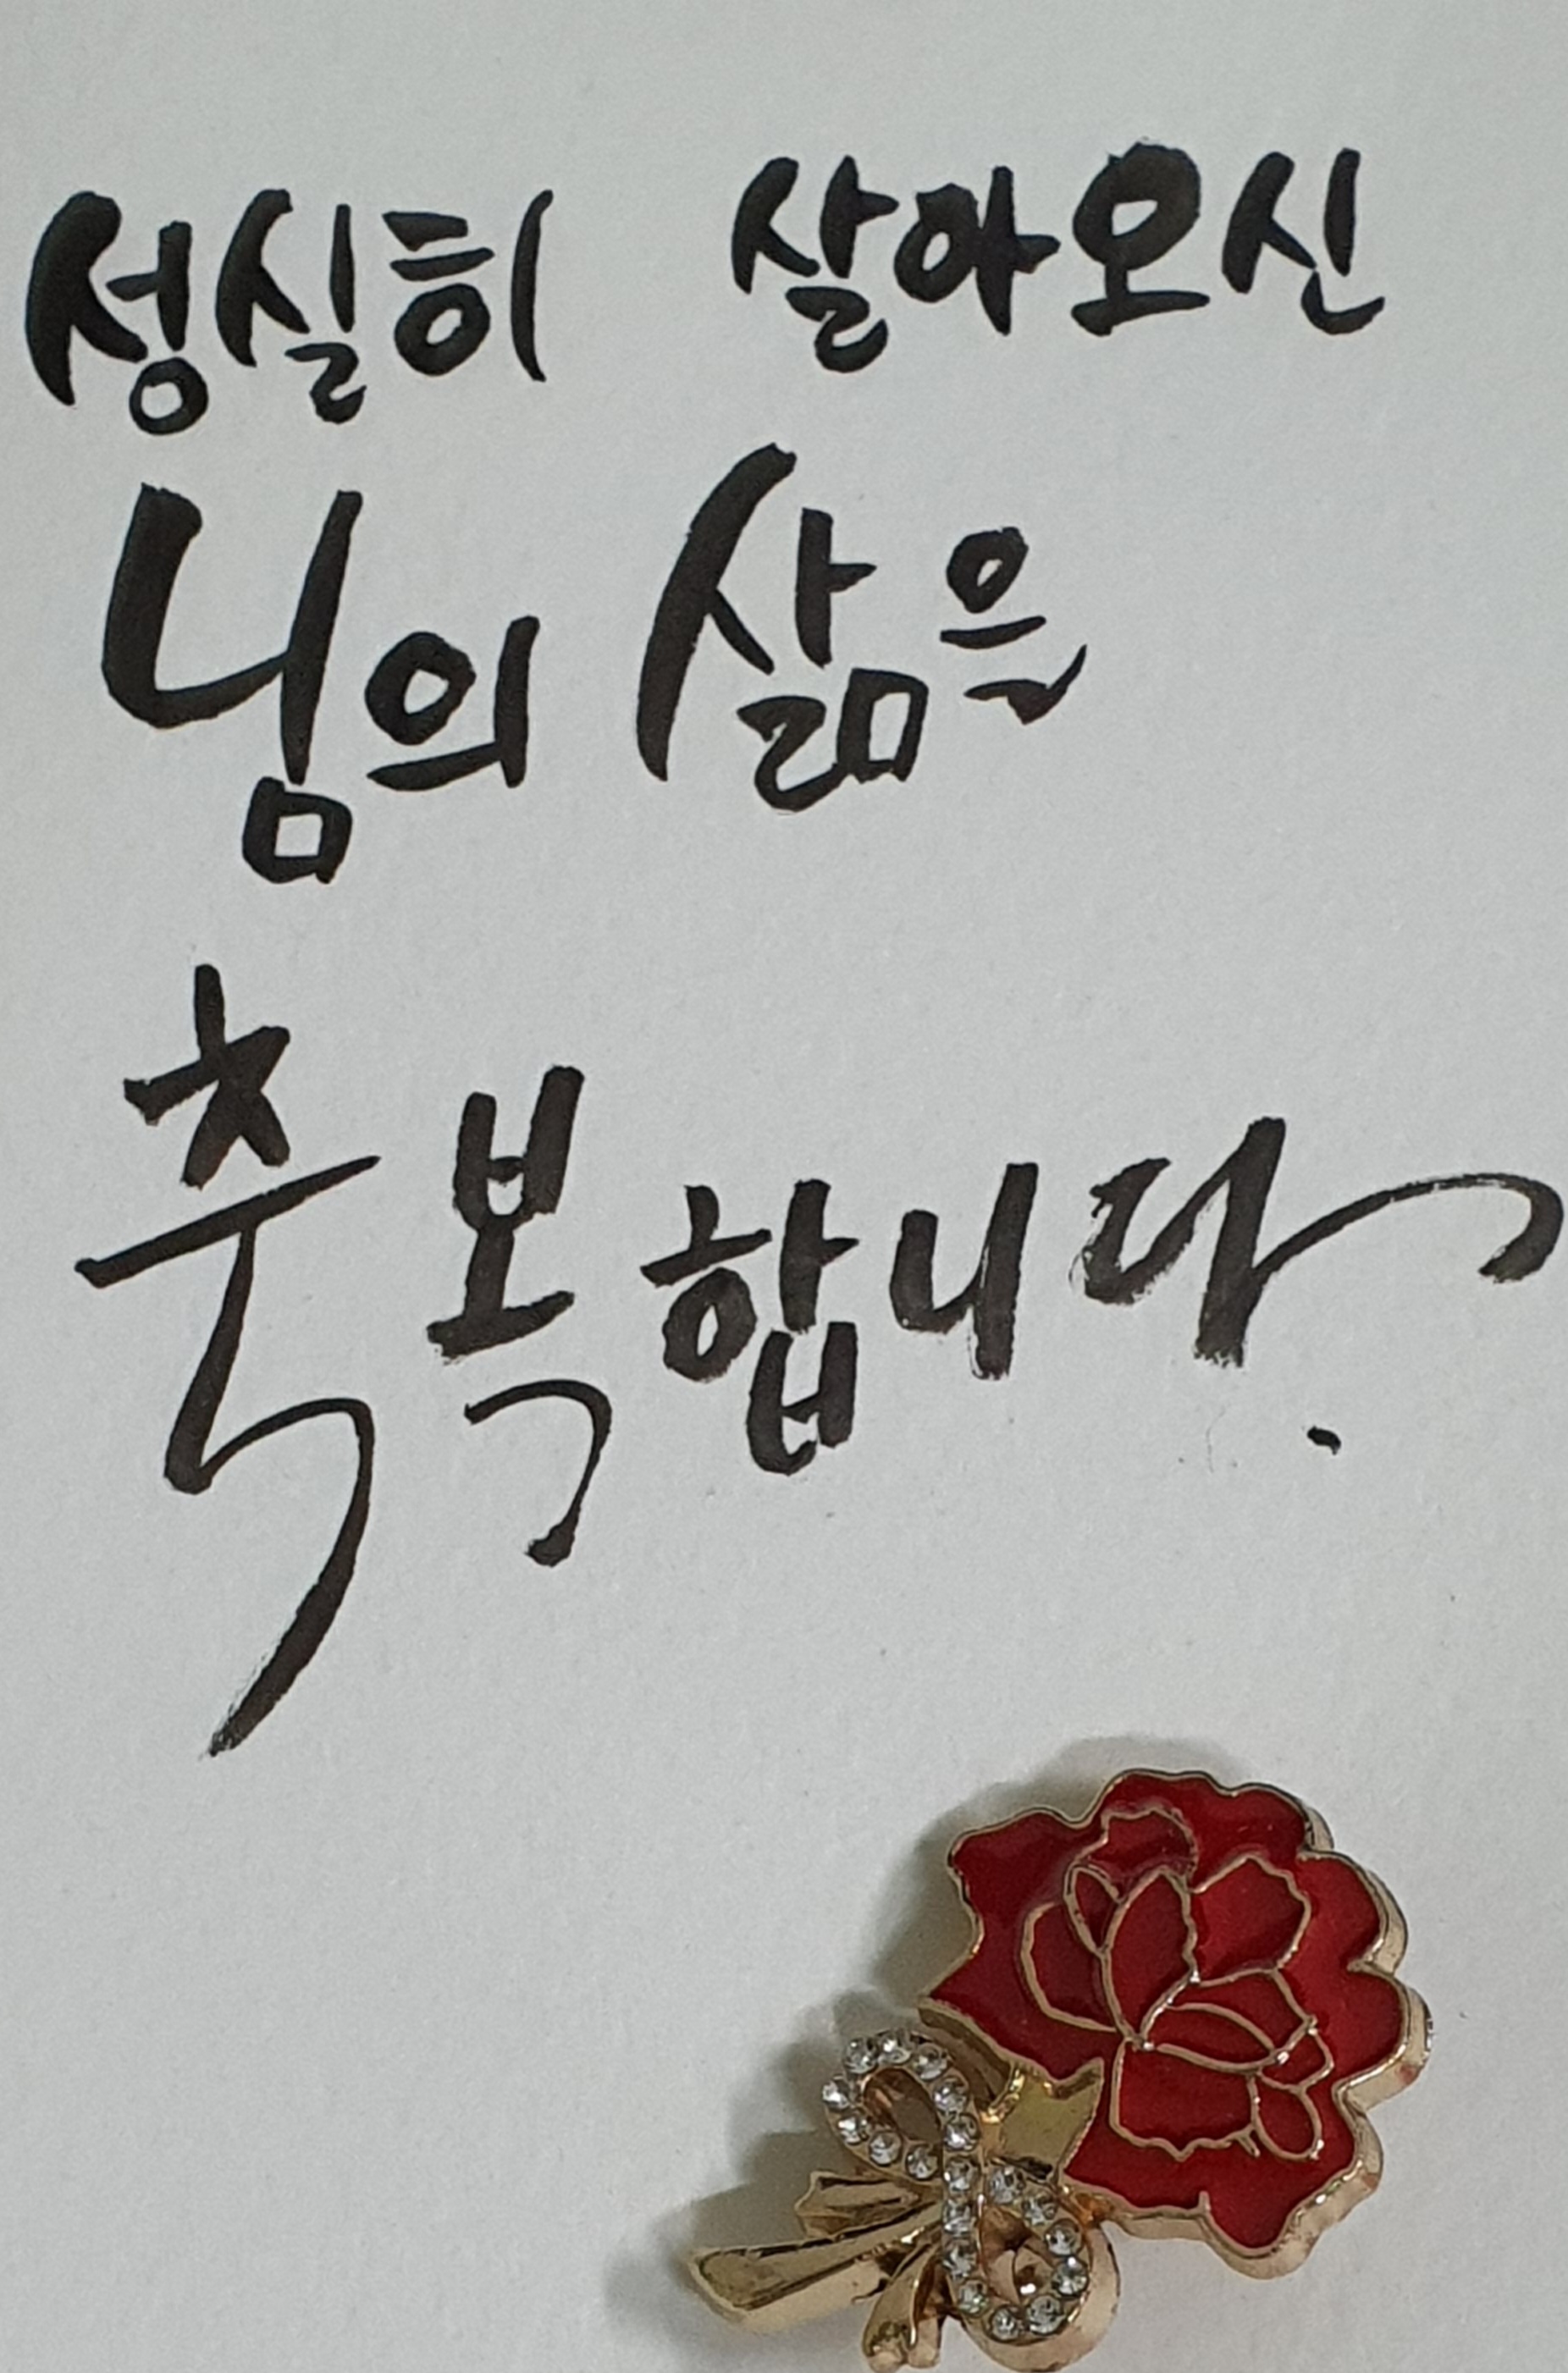 성실히 살아오신
님의 삶을
축복합니다.